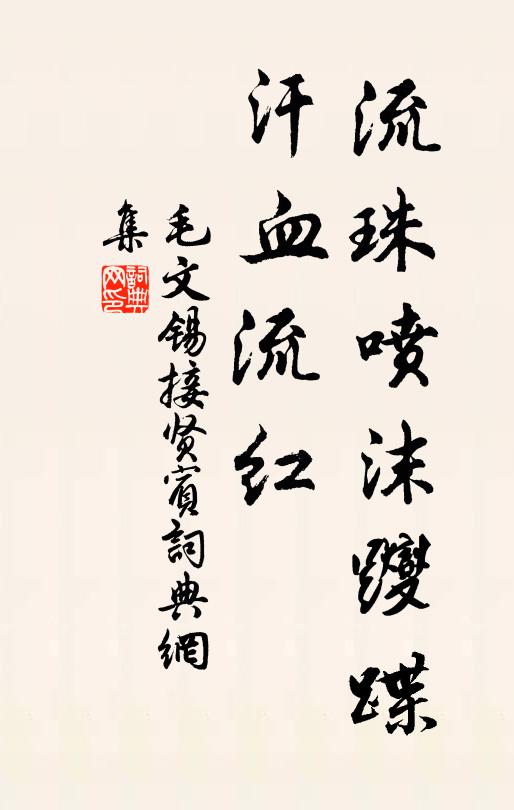 流珠喷沫躞蹀
汗血流红
毛文锡接贤宾詞典網
集
詞典
网印